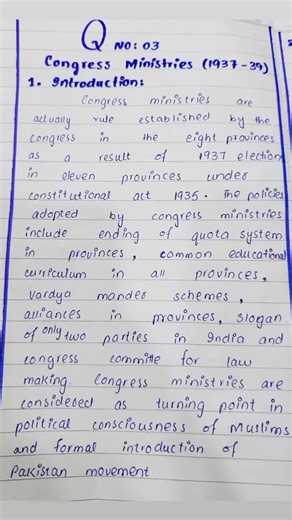 Q NO: 03
Congress Ministries (1937-39)
1. Introduction:
Congress ministries are
actually rule established by the
congress in the eight provinces
as a result of 1937 election
in eleven provinces under
constitutional act 1935. The policies
adopted by congress ministries
include ending of quota system
in provinces, common educational
curriculum in all provinces,
vardya mander schemes,
alliances in provinces, slogan
of only two parties in India and
congress committe for law
making. Congress ministries are
considered as turning point in
political consciousness of Muslims
and formal introduction of
Pakistan movement